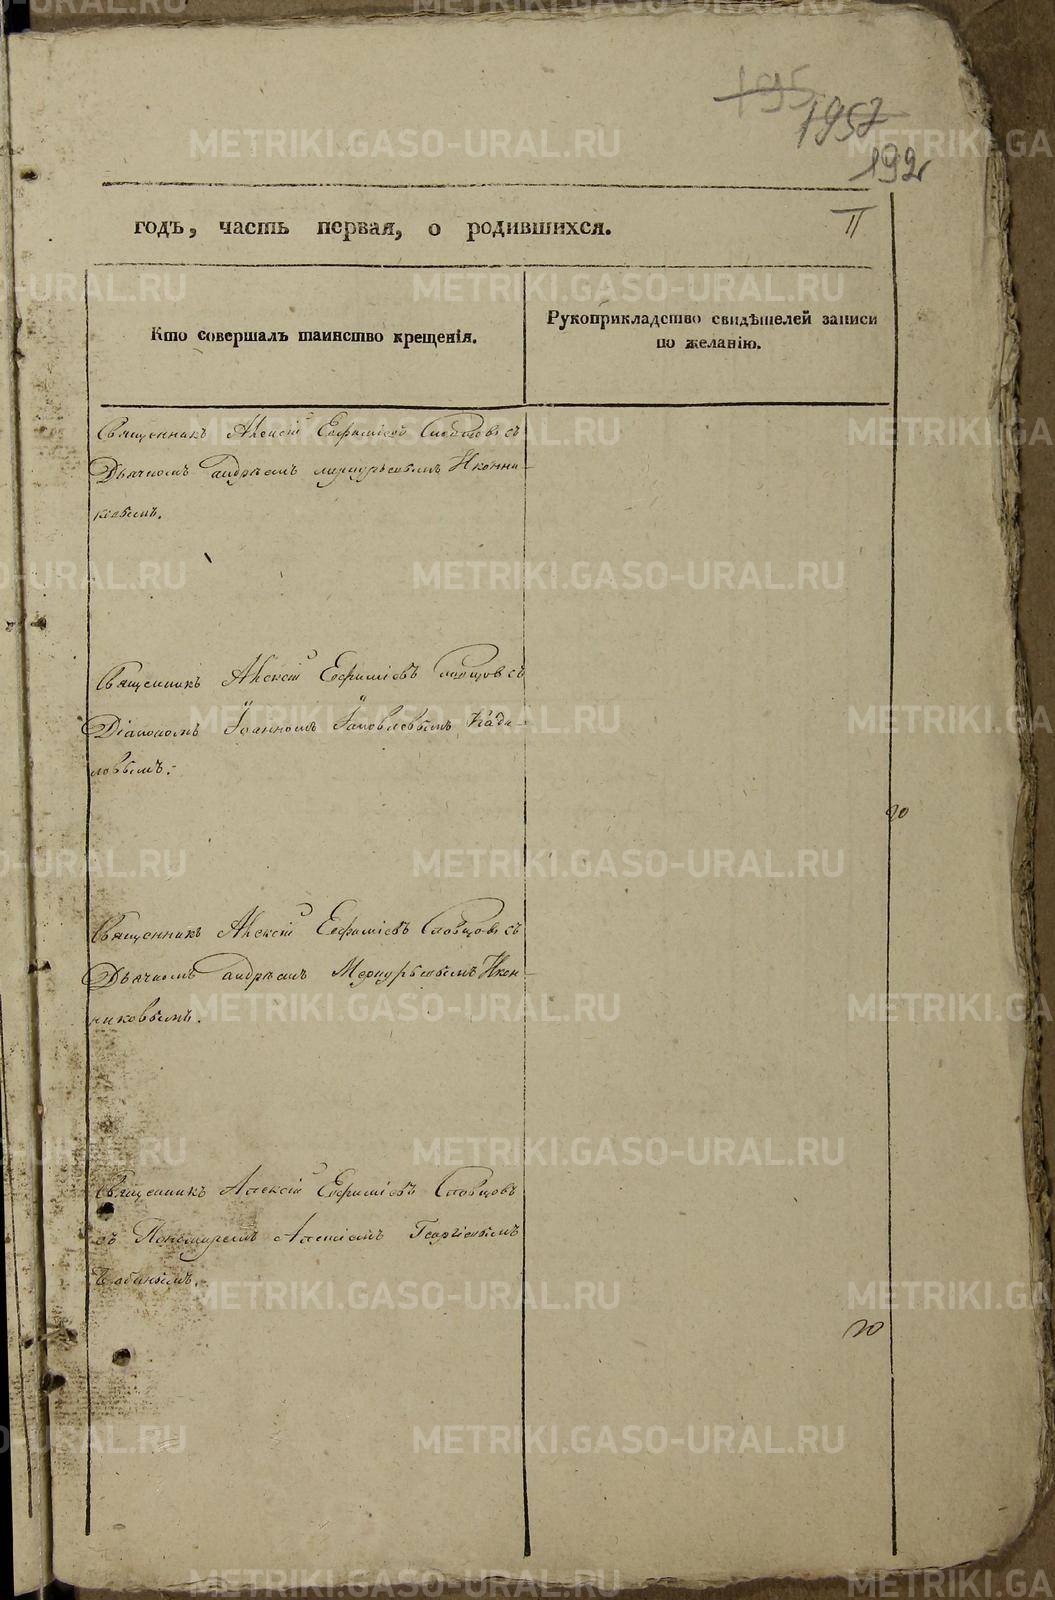 195
1957
192
годъ, часть первая, о родившихся.
II
Кто совершалъ таинство крещенія.
Рукоприкладство свидѣтелей записи
по желанію.
Священникъ Алексій Евфиміевъ Словцовъ съ
Дьячкомъ Андреемъ Меркурьевымъ Иконни-
ковымъ.
Священникъ Алексій Евфиміевъ Словцовъ съ
Діакономъ Іоанномъ Іаковлевымъ Кади-
ловымъ.
20
Священникъ Алексій Евфиміевъ Словцовъ съ
Дьячкомъ Андреемъ Меркурьевымъ Икон-
никовымъ.
Священникъ Алексій Евфиміевъ Словцовъ
съ Пономаремъ Алексіемъ Георгіевымъ
20
METRIKI.GASO-URAL.RU